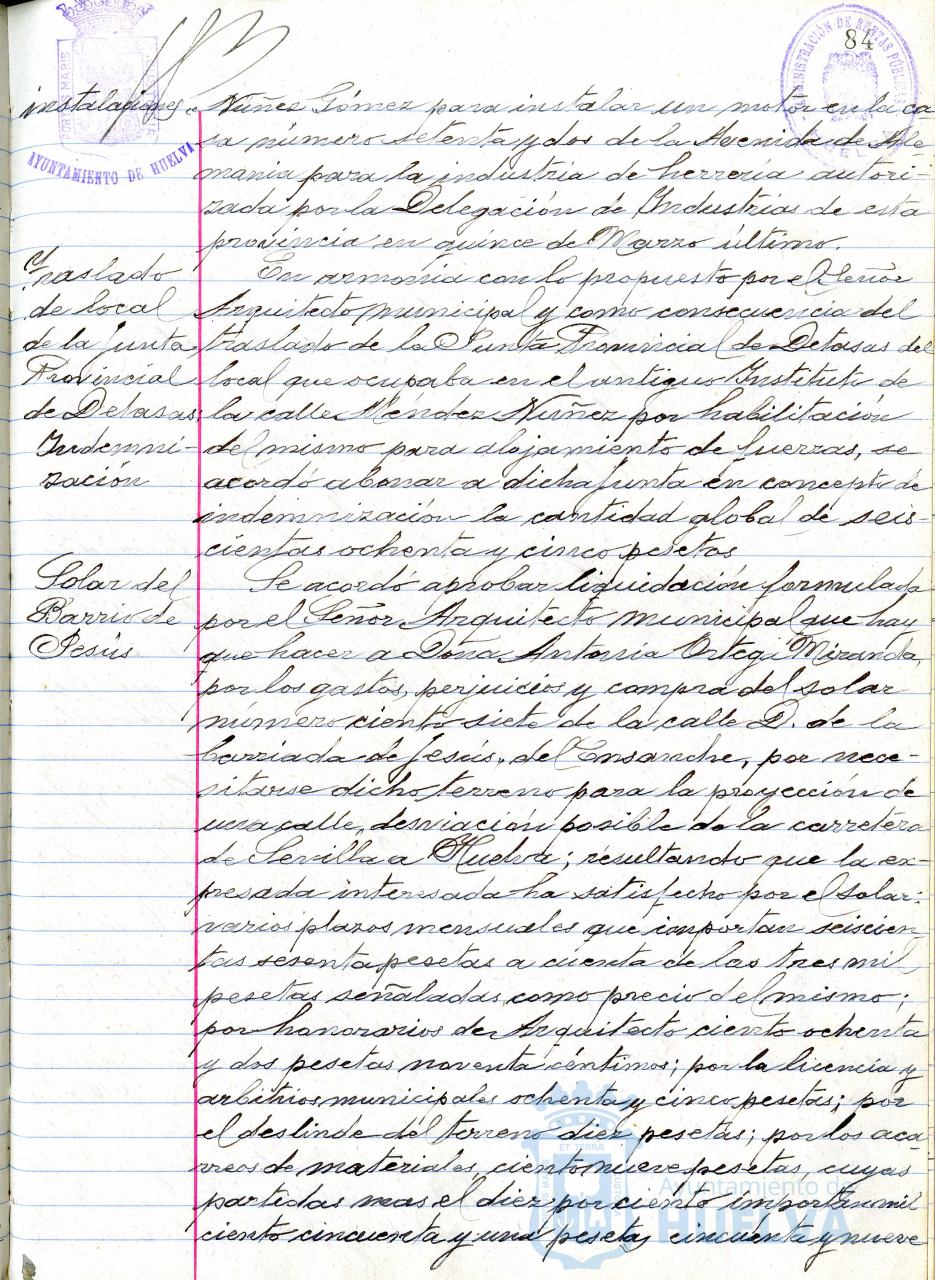 84
PORTUS MARIS
AYUNTAMIENTO DE HUELVA
ADMINISTRACIÓN DE RENTAS PÚBLICAS
instalaciones.
Núñez Gómez para instalar un motor en la ca-
sa número setenta y dos de la Avenida de Ale
mania para la industria de herreria autori-
zada por la Delegación de Industrias de esta
provincia en quince de Marzo último.
Traslado
de local
de la Junta
Provincial
de Detasas.
Indemni-
zación
En armonia con lo propuesto por el Señor
Arquitecto municipal y como consecuencia del
traslado de la Junta Provincial de Detasas del
local que ocupaba en el antiguo Instituto de
la calle Méndez Núñez por habilitación
del mismo para alojamiento de fuerzas, se
acordó abonar a dicha Junta en concepto de
indemnización la cantidad global de seis-
cientas ochenta y cinco pesetas
Solar del
Barrio de
Jesús
Se acordó aprobar liquidación formulada
por el Señor Arquitecto municipal que hay
que hacer a Doña Antonia Ortega Miranda,
por los gastos, perjuicios y compra del solar
número ciento siete de la calle D. de la
barriada de Jesús, del Ensanche, por nece-
sitarse dicho terreno para la proyección de
una calle, desviación posible de la carretera
de Sevilla a Huelva; resultando que la ex-
presada interesada ha satisfecho por el solar:
varios plazos mensuales que importan seiscien
tas sesenta pesetas a cuenta de las tres mil
pesetas señaladas como precio del mismo;
por honorarios de Arquitecto ciento ochenta
y dos pesetas noventa céntimos; por la licencia y
arbitrios municipales ochenta y cinco pesetas; por
el deslinde del terreno diez pesetas; por los aca
rreos de materiales, ciento nueve pesetas, cuyas
partidas mas el diez por ciento importan mil
ciento cincuenta y una pesetas cincuenta y nueve
Ayuntamiento de
HUELVA